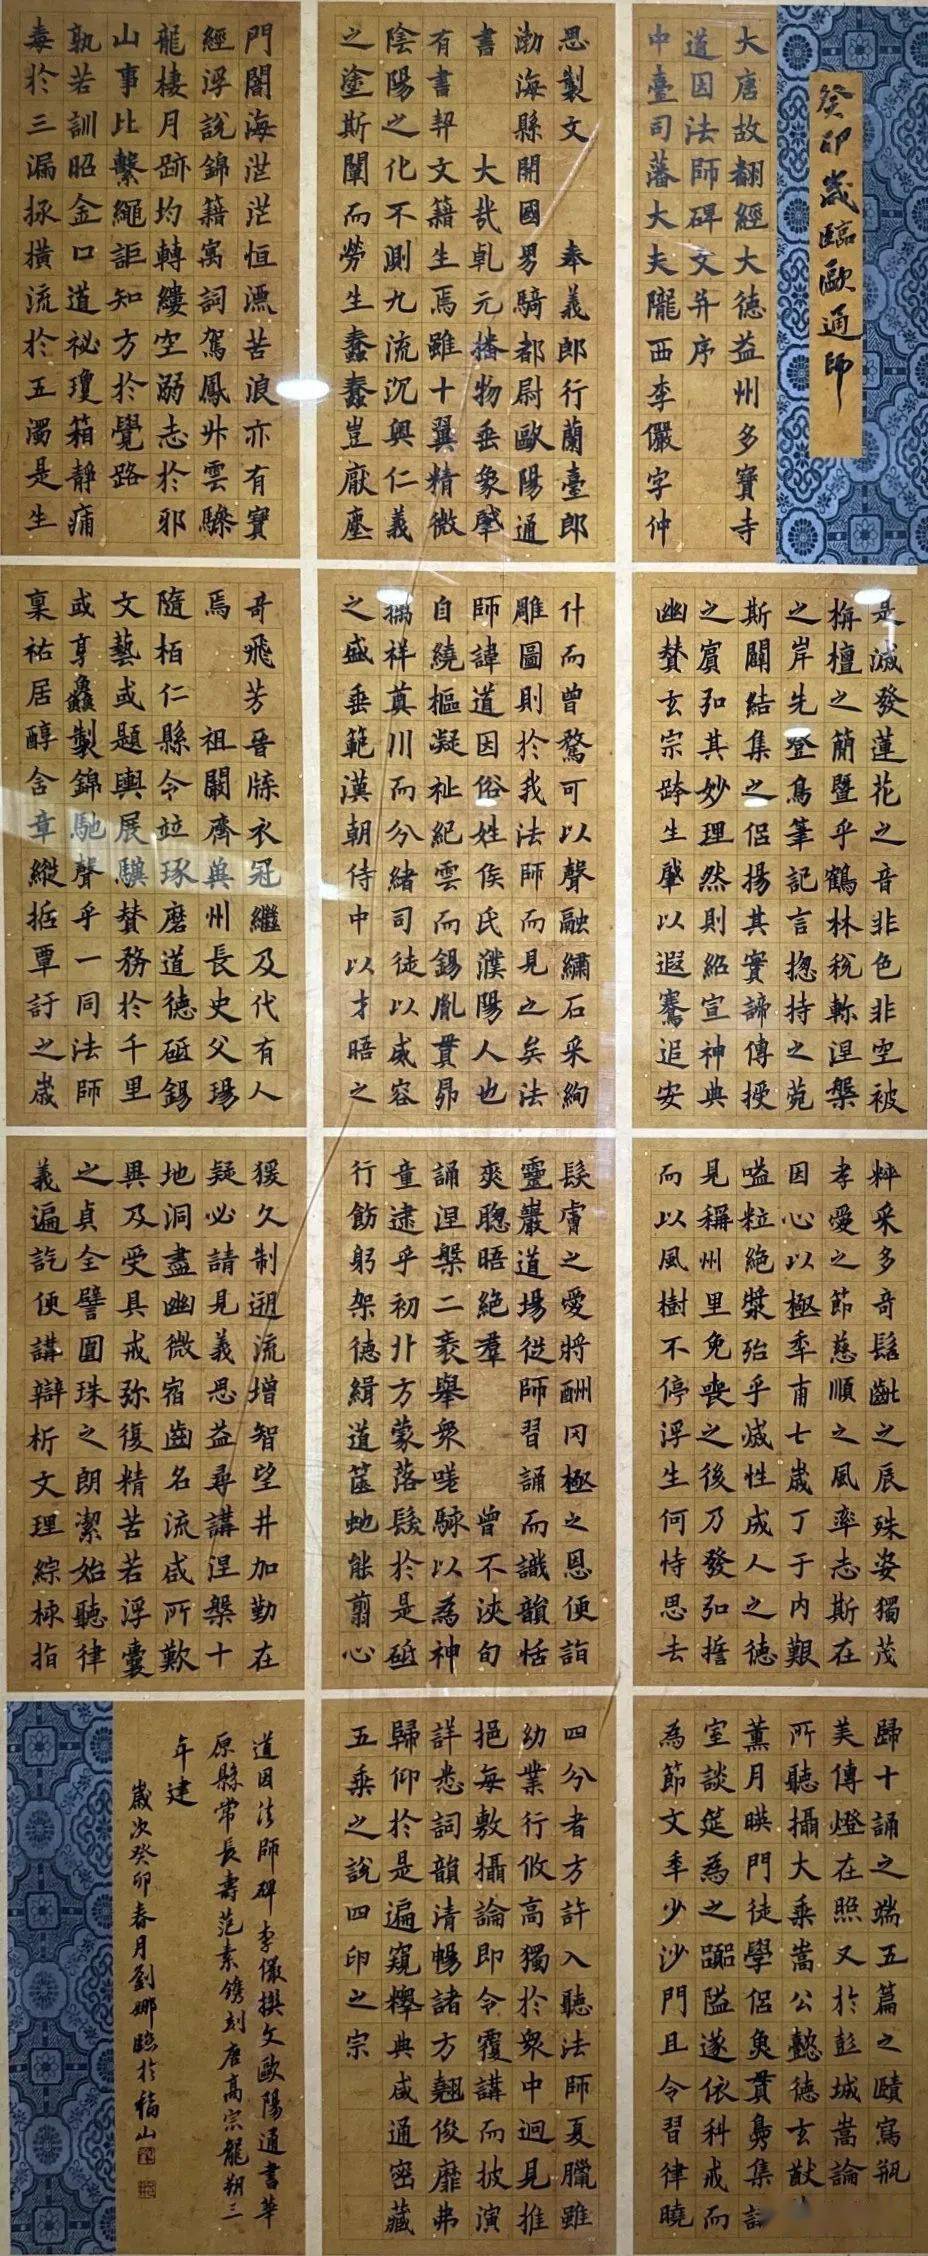 癸卯歲臨歐通師
大唐故翻經大德益州多寶寺
道因法師碑文并序
中臺司藩大夫隴西李儼字仲
思製文 奉義郎行蘭臺郎
渤海縣開國男騎都尉歐陽通
書 大哉乹元播物垂象肇
有書契文籍生焉雖十翼精微
陰陽之化不測九流沉奧仁義
之塗斯闡而勞生蠢蠢豈厭塵
門閤海茫茫恒漂苦浪亦有寶
經浮說錦籍寓詞駕鳳升雲驂
龍棲月跡均轉縷空溺志於邪
山事比繫繩詎知方於覺路
孰若訓昭金口道祕瓊箱靜痛
毒於三漏拯橫流於五濁是生
是滅發蓮花之音非色非空被
栴檀之簡暨乎鶴林稅軫涅槃
之岸先登鳥筆記言揔持之菀
斯闢結集之侶揚其實諦傳授
之賓弘其妙理然則紹宣神典
幽贊玄宗跨生肇以遐騫追安
什而曾騖可以聲融繡石采絢
雕圖則於我法師而見之矣法
師諱道因俗姓侯氏濮陽人也
自繞樞凝祉紀雲而錫胤貫昴
摛祥奠川而分緒司徒以威容
之盛垂範漢朝侍中以才晤之
奇飛芳晉牒衣冠繼及代有人
焉 祖闞齊冀州長史父瑒
隨柏仁縣令竝琢磨道德砥錫
文藝或題輿展驥贊務於千里
或亨鱻製錦馳聲乎一同法師
稟祐居醇含章縱括覃訏之歲
粹采多奇髫齔之辰殊姿獨茂
孝愛之節慈順之風率志斯在
因心以極年甫七歲丁于內艱
嗌粒絕漿殆乎滅性成人之德
見稱州里免喪之後乃發弘誓
而以風樹不停浮生何恃思去
髮膚之愛將酬冈極之恩便詣
靈巖道場從師習誦而識韻恬
爽聰晤絕羣 曾不浹旬
誦涅槃二袠舉衆嗟駭以為神
童逮乎初丱方蒙落髮於是砥
行飭躬架德緝道篋虵能翦心
猨久制遡流增智望井加勤在
疑必請見義思益尋講涅槃十
地洞盡幽微宿齒名流咸所歎
異及受具戒弥復精苦若浮囊
之貞全譬圓珠之朗潔始聽律
義遍訖便講辯析文理綜核指
歸十誦之端五篇之賾寫瓶
美傳燈在照又於彭城嵩論
所聽攝大乘嵩公懿德玄猷
薰月暎門徒學侶魚貫鳧集
室談筵為之嚻隘遂依科戒而
為節文年少沙門且令習律曉
四分者方許入聽法師夏臘雖
幼業行攸高獨於衆中迥見推
挹每敷攝論即令覆講而披演
詳悉詞韻清暢諸方翹俊靡弗
歸仰於是遍窺釋典咸通密藏
五乘之說四印之宗
道因法師碑李儼撰文歐陽通書華
原縣常長壽范素鐫刻唐高宗龍朔三
年建
歲次癸卯春月劉娜臨於福山